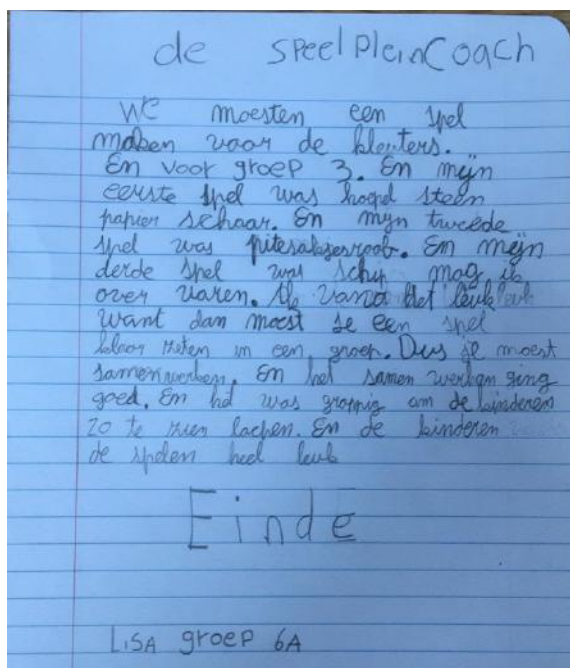 de speelpleincoach
We moesten een spel
maken voor de kleuters.
En voor groep 3. En mijn
eerste spel was hoepel steen
papier schaar. En mijn tweede
spel was En mijn
derde spel was schip mag ik
over varen. Ik vond het leuk
want dan moest je een spel
klaar zeten in een groep. Dus je moest
samenwerken. En het samen werken ging
goed. En het was grappig om de kinderen
zo te zien lachen. En de kinderen
de spelen heel leuk
Einde
LiSA groep 6A